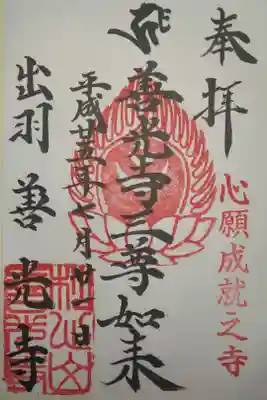 奉拝
心願成就之寺
善光寺三尊如来
平成廿五年二月廿一日
出羽善光寺